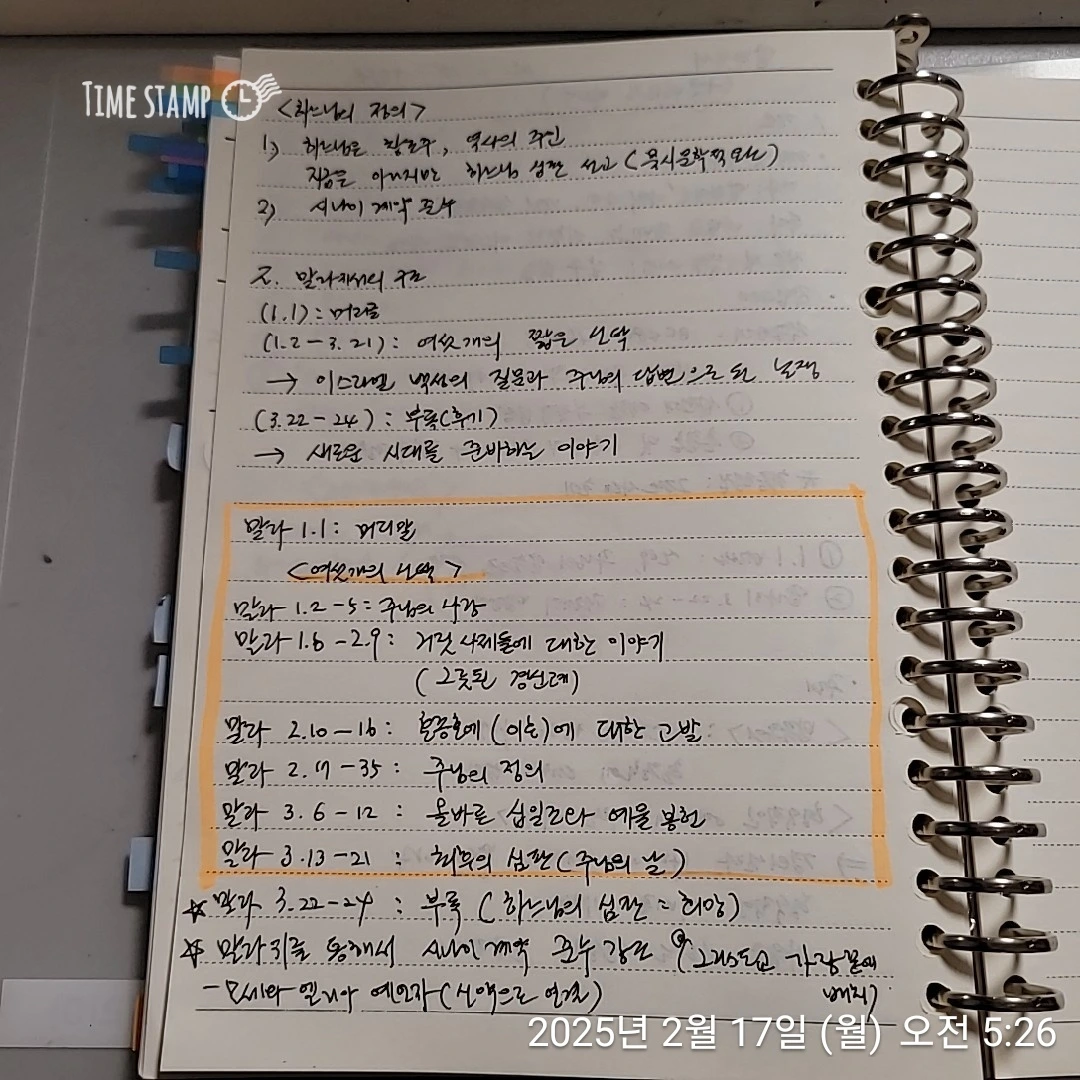 TIME STAMP
<하느님의 정의>
1) 하느님은 창조주, 역사의 주인
지금은 아니지만 하느님 심판 선고 (묵시문학적 요소)
2) 시나이 계약 준수
2. 말라키서의 구조
(1.1) : 머리글
(1.2 - 3.21) : 여섯개의 짧은 신탁
→ 이스라엘 백성의 질문과 주님의 답변으로 된 논쟁
(3.22 - 24) : 부록(후기)
→ 새로운 시대를 준비하는 이야기
말라 1.1 : 머리말
<여섯개의 신탁>
말라 1.2 - 5 : 주님의 사랑
말라 1.6 - 2.9 : 거짓 사제들에 대한 이야기
(그릇된 경신례)
말라 2.10 - 16 : 혼종혼에 (이혼)에 대한 고발
말라 2.17 - 35 : 주님의 정의
말라 3.6 - 12 : 올바로 십일조와 예물 봉헌
말라 3.13 - 21 : 최후의 심판 (주님의 날)
☆ 말라 3.22 - 24 : 부록 (하느님의 심판 = 희망)
☆ 말라키를 통해서 시나이 계약 준수 강조 그리스도교 가장 끝에
배치
- 모세와 엘리야 예언자 (신약으로 연결)
2025년 2월 17일 (월) 오전 5:26